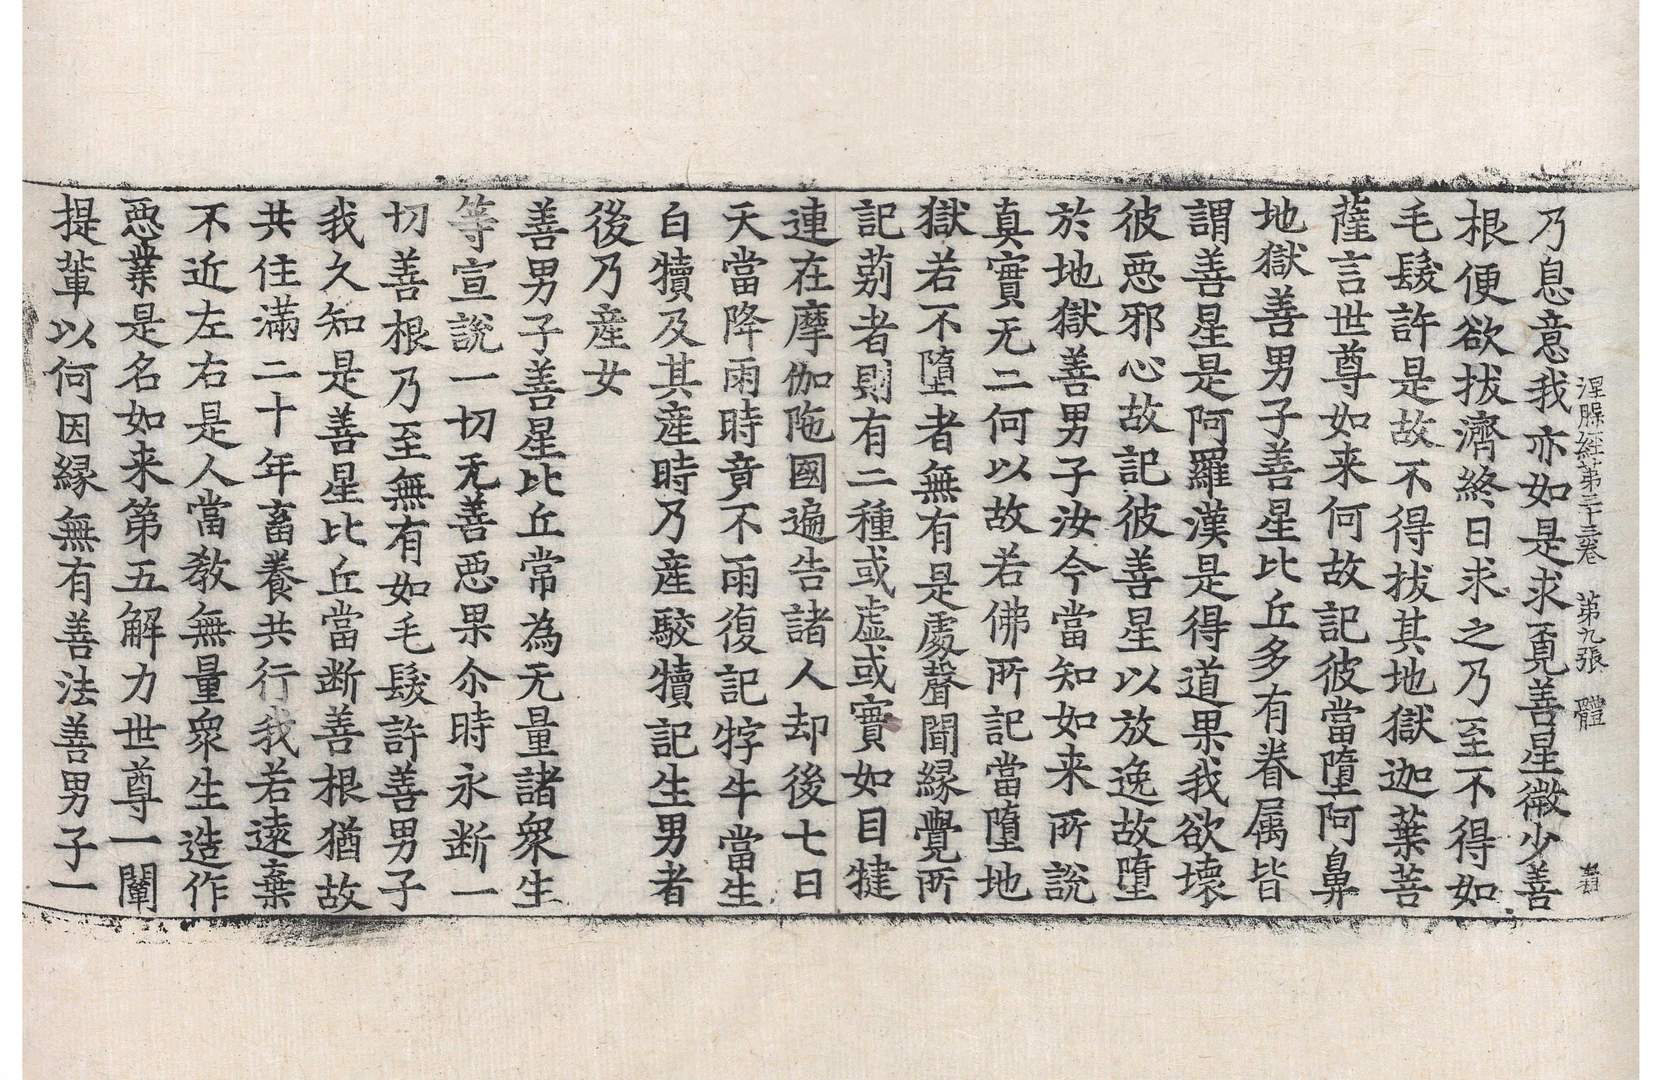 涅槃經第三十三卷 第九張 體
乃息意我亦如是求覓善星微少善
根便欲拔濟終日求之乃至不得如
毛髮許是故不得拔其地獄迦葉菩
薩言世尊如来何故記彼當墮阿鼻
地獄善男子善星比丘多有眷属皆
謂善星是阿羅漢是得道果我欲壞
彼惡邪心故記彼善星以放逸故墮
於地獄善男子汝今當知如来所說
真實无二何以故若佛所記當墮地
獄若不墮者無有是處聲聞縁覺所
記莂者則有二種或虛或實如目揵
連在摩伽陁國遍告諸人却後七日
天當降雨時竟不雨復記牸牛當生
白犢及其産時乃産駮犢記生男者
後乃産女
善男子善星比丘常為无量諸衆生
等宣說一切无善惡果尒時永断一
切善根乃至無有如毛髮許善男子
我久知是善星比丘當断善根猶故
共住滿二十年畜養共行我若遠棄
不近左右是人當教無量衆生造作
惡業是名如来第五解力世尊一闡
提輩以何因縁無有善法善男子一